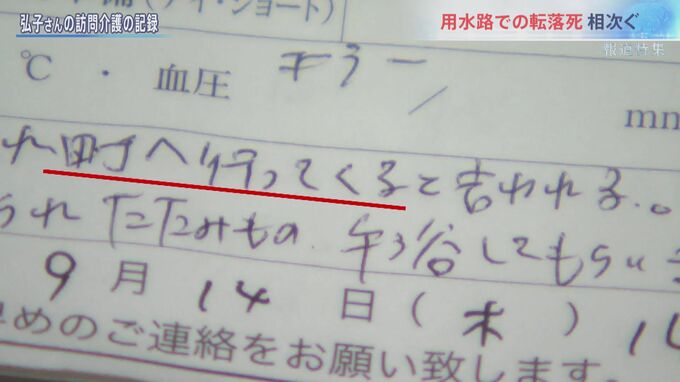 弘子さんの訪問介護の記録
用水路での転落死 相次ぐ
報道特集
イ・ショート)
℃ ・ 血圧 エラー mm
町へ行ってくると言われる。
たたみもの
してもらい
9月14日(木)
めのご連絡をお願い致します。